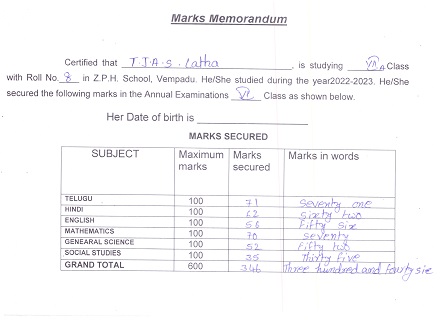 Marks Memorandum
Certified that T.J.A.S. Latha , is studying VII A Class
with Roll No. 8 in Z.P.H. School, Vempadu. He/She studied during the year2022-2023. He/She
secured the following marks in the Annual Examinations VI Class as shown below.
Her Date of birth is
MARKS SECURED
SUBJECT Maximum marks Marks secured Marks in words
TELUGU 100 71 Seventy one
HINDI 100 62 Sixty two
ENGLISH 100 56 Fifty Six
MATHEMATICS 100 70 Seventy
GENEARAL SCIENCE 100 52 Fifty two
SOCIAL STUDIES 100 35 Thirty Five
GRAND TOTAL 600 346 Three hundred and fourty six